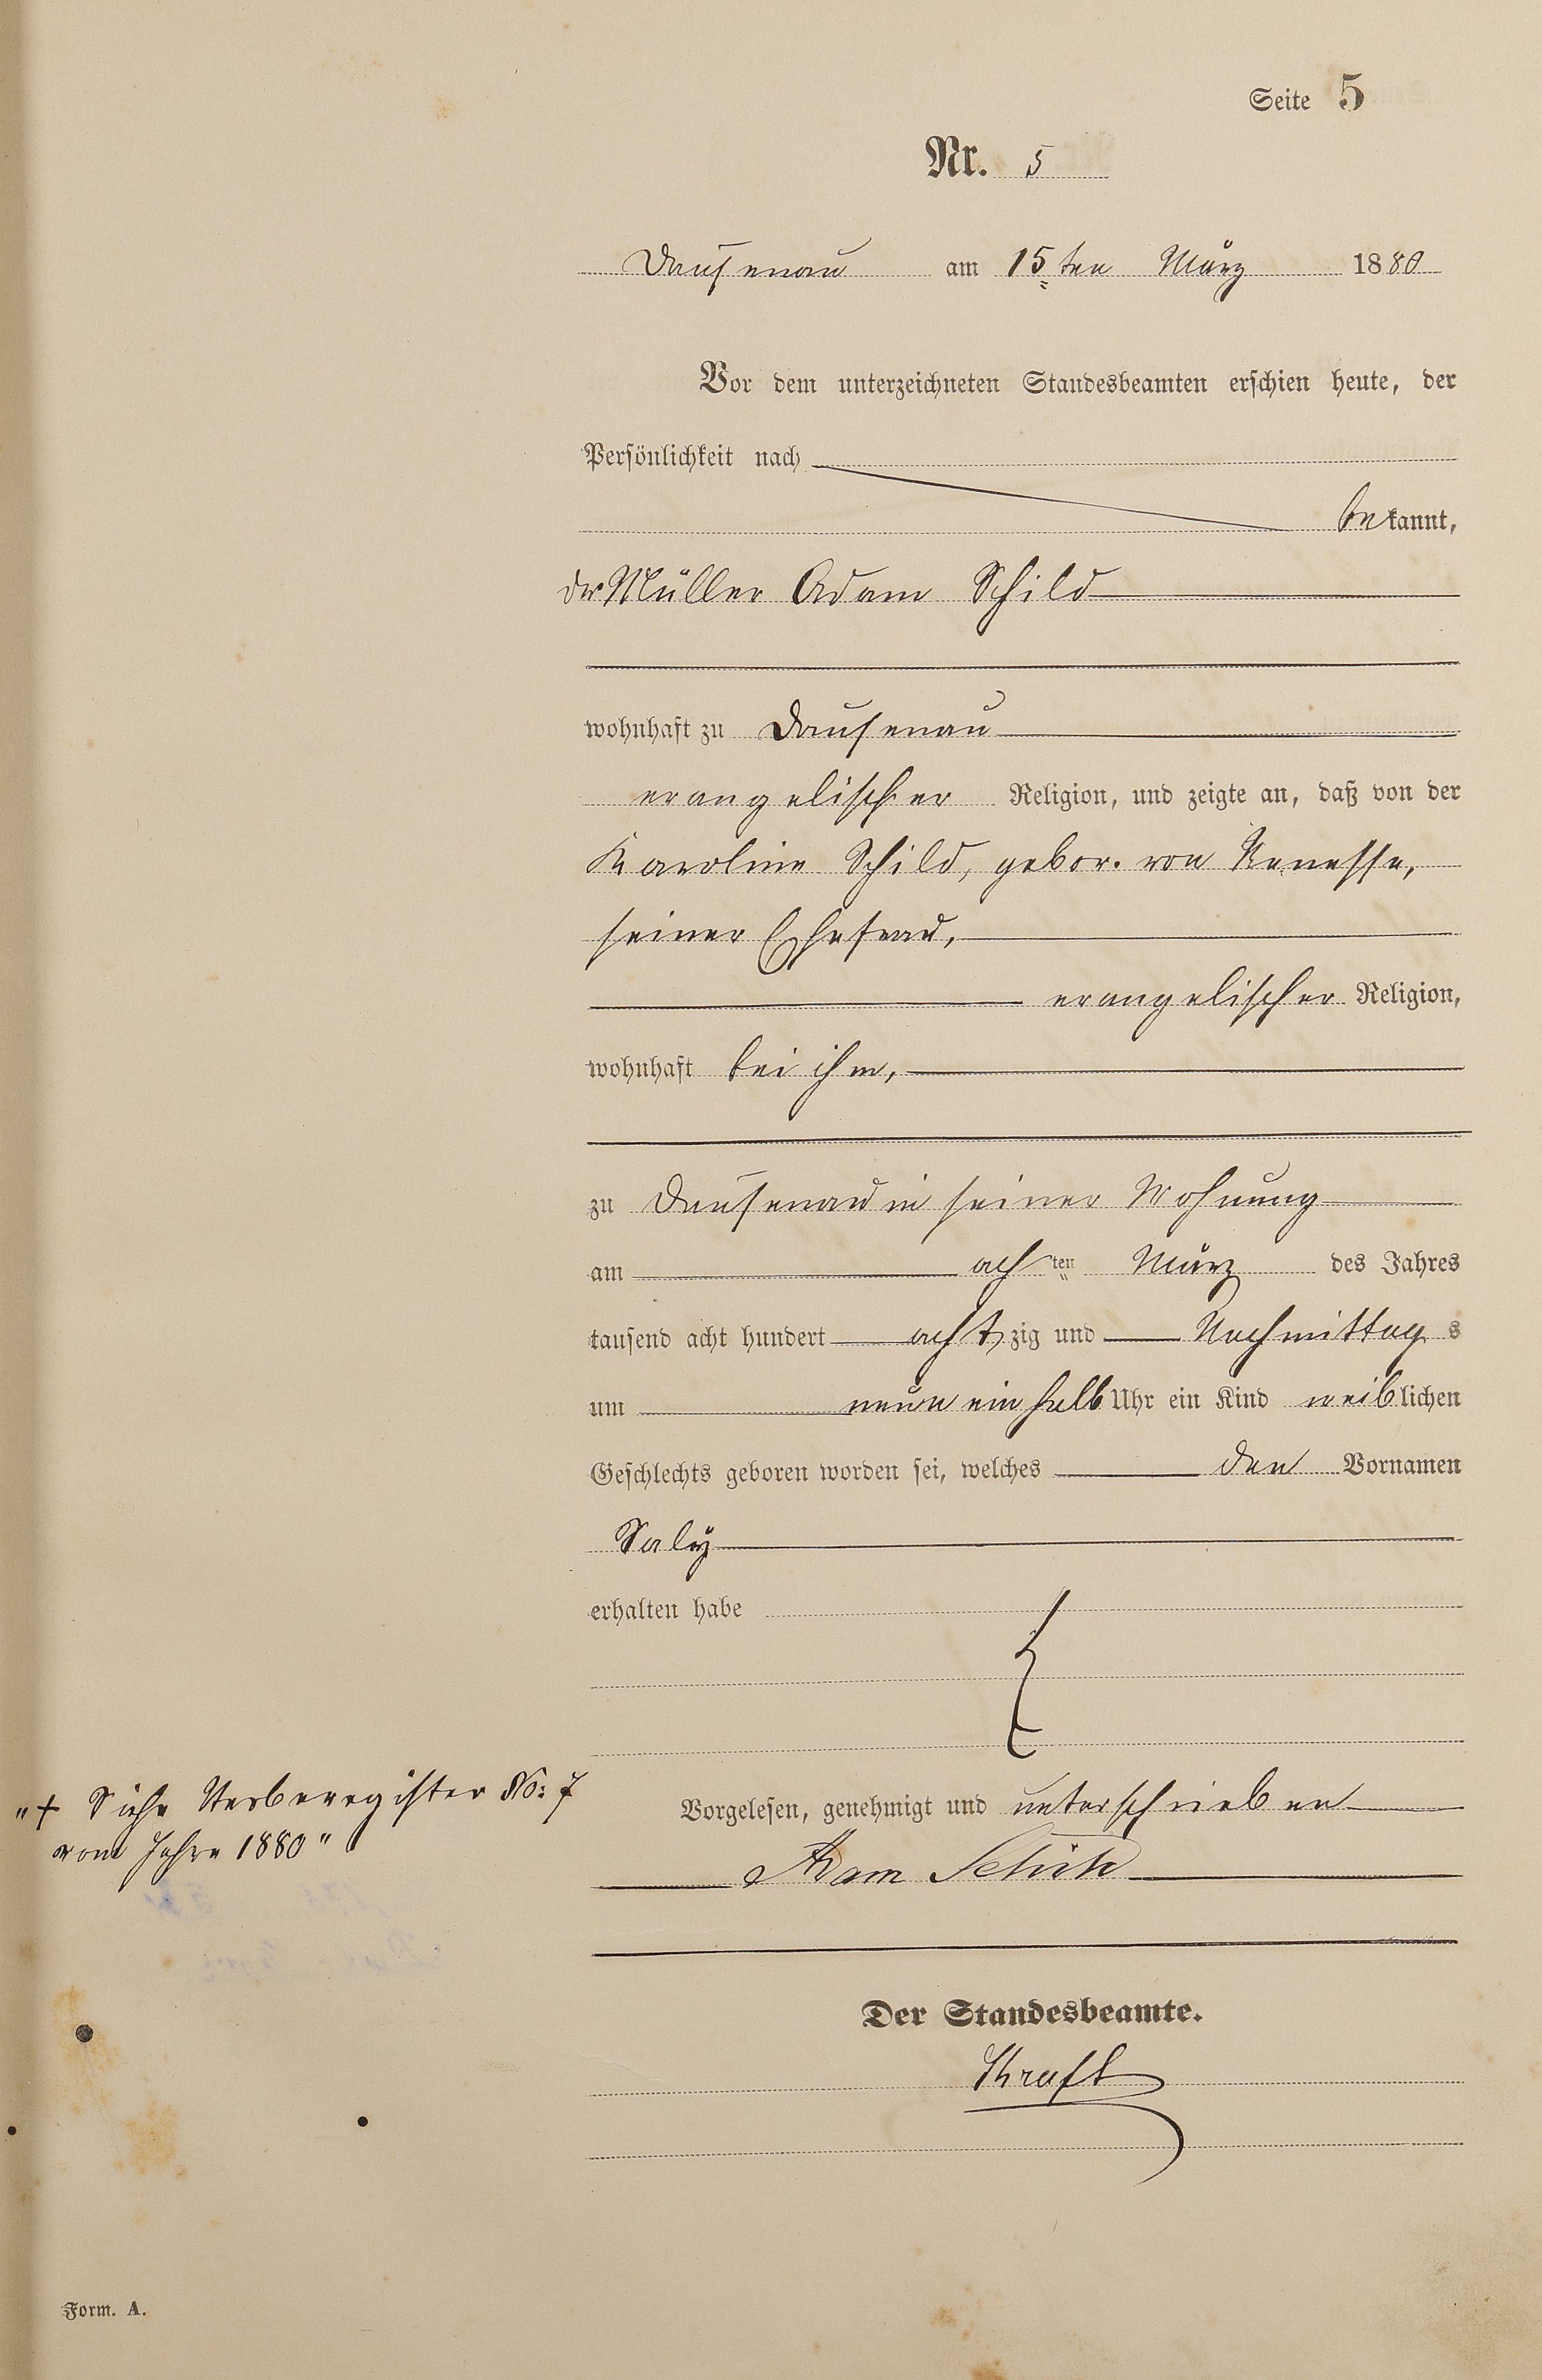 Seite 5
Nr. 5
Dausenau am 15ten März 1880
Vor dem unterzeichneten Standesbeamten erschien heute, der
Persönlichkeit nach
bekannt,
der Müller Adam Schild
wohnhaft zu Dausenau
evangelischer Religion, und zeigte an, daß von der
Karoline Schild, gebor. von Renesse,
seiner Ehefrau,
evangelischer Religion,
wohnhaft bei ihm,
zu Dausenau in seiner Wohnung
am achten März des Jahres
tausend acht hundert achtzig und Nachmittags
um neun ein halb Uhr ein Kind weiblichen
Geschlechts geboren worden sei, welches den Vornamen
Saly
erhalten habe
"+ Siehe Sterberegister No: 7
vom Jahre 1880"
Vorgelesen, genehmigt und unterschrieben
Adam Schild
Der Standesbeamte.
Kraft
Form. A.